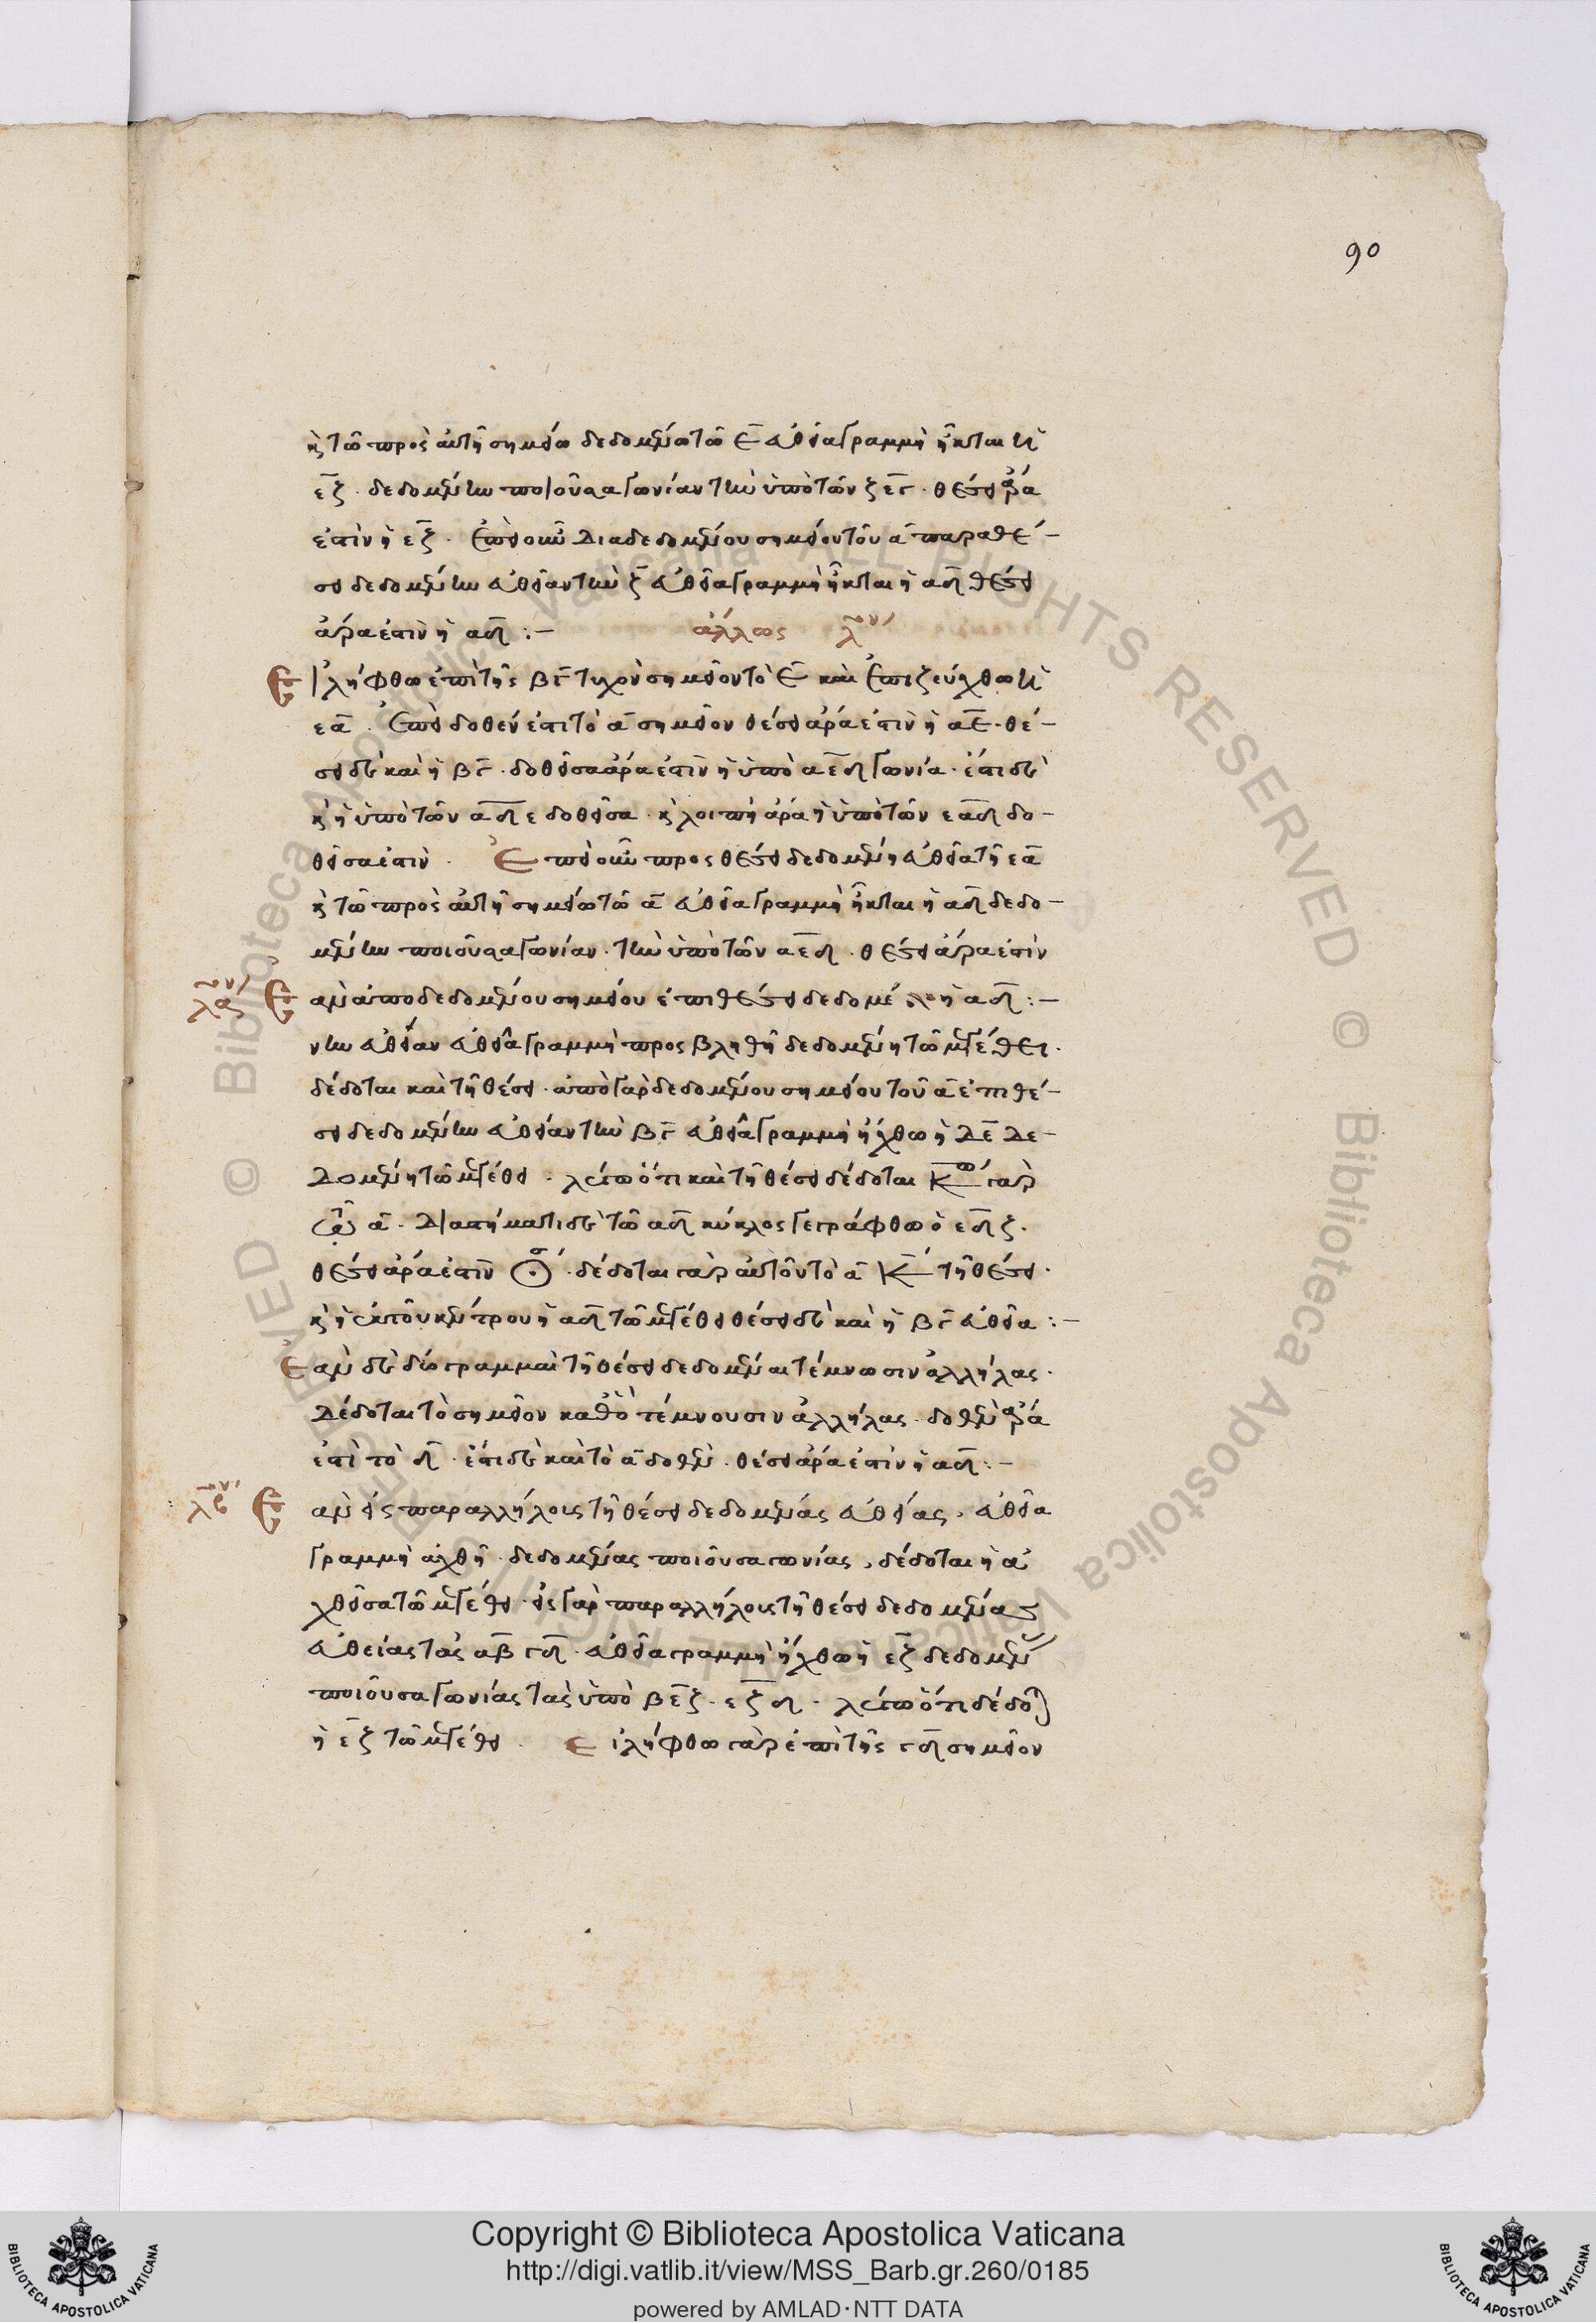 90
κ τῶ πρὸς αὐτῆ σημείω δεδομένω τῶ ε̅ εὐθεῖα γραμμὴ ἦκται ἡ
εζ̅ · δεδομένην ποιοῦσα γωνίαν τὴν ὑπὸ τῶν ζεγ̅ · θέσει ἄρα
ἐστὶν ἡ εζ̅ · ἐπεὶ οὖν διὰ δεδομένου σημείου τοῦ α̅ παρὰ θέ–
σει δεδομένην εὐθεῖαν τὴν ζ̅ εὐθεῖα γραμμὴ ἦκται ἡ αδ̅ θέσει
ἄρα ἐστὶν ἡ αδ̅ :–
ἄλλως λ̅ον
Εἰλήφθω ἐπὶ τῆς βγ̅ τυχὸν σημεῖον τὸ ε̅ καὶ ἐπιζεύχθω ἡ
εα̅ · ἐπεὶ δοθέν ἐστι τὸ α̅ σημεῖον θέσει ἄρα ἐστὶν ἡ αε̅ · θέ–
σει δὲ καὶ ἡ βγ̅ · δοθεῖσα ἄρα ἐστὶν ἡ ὑπὸ αεδ̅ γωνία · ἔστι δὲ
κ ἡ ὑπὸ τῶν αδε̅ δοθεῖσα · κ λοιπὴ ἄρα ἡ ὑπὸ τῶν εαδ̅ δο–
θεῖσα ἐστὶν · Ἐπεὶ οὖν πρὸς θέσει δεδομένη εὐθεῖα τῆ εα̅
κ τῶ πρὸς αὐτῆ σημείω τῶ α̅ εὐθεῖα γραμμὴ ἦκται ἡ αδ̅ δεδο–
μένην ποιοῦσα γωνίαν · τὴν ὑπὸ τῶν αεδ̅ · θέσει ἄρα ἐστὶν
λα̅ον Ἐὰν ἀπο δεδομένου σημείου ἐπι θέσει δεδομέ ἡ αδ̅ :–
νην εὐθεῖαν εὐθεῖα γραμμὴ προς βληθῆ δεδομένη τῶ μεγέθει ·
δέδοται καὶ τῆ θέσει · ἀπὸ γὰρ δεδομένου σημείου τοῦ α̅ ἐπι θέ–
σει δεδομένην εὐθεῖαν τὴν βγ̅ εὐθεῖα γραμμὴ ἤχθω ἡ δε̅ δε–
δομένη τῶ μεγέθει · λέγω ὅτι καὶ τῆ θέσει δέδοται Κω γὰρ
α̅ · διαστήματι δὲ τῶ αδ̅ κύκλος γεγράφθω ὁ εδζ̅ ·
θέσει ἄρα ἐστὶν ☉ · δέδοται γὰρ αὐτοῦ τὸ α̅ Κ τῆ θέσει ·
κ ἡ ἐκ τοῦ κέντρου ἡ αδ̅ τῶ μεγέθει θέσει δὲ καὶ ἡ βγ̅ εὐθεῖα :–
Ἐὰν δὲ δύο γραμμαὶ τῆ θέσει δεδομέναι τέμνωσιν ἀλλήλας ·
δέδοται τὸ σημεῖον καθὸ τέμνουσιν ἀλλήλας · δοθὲν ἄρα
ἐστὶ τὸ δ̅ · ἔστι δὲ καὶ τὸ α̅ δοθὲν · θέσει ἄρα ἐστὶν ἡ αδ̅ :–
λβ̅ον Ἐὰν εἰς παραλλήλους τῆ θέσει δεδομένας εὐθείας, εὐθεῖα
γραμμὴ ἀχθῆ · δεδομένας ποιοῦσα γωνίας, δέδοται ἡ ἀ
χθεῖσα τῶ μεγέθει · εἰς γὰρ παραλλήλους τῆ θέσει δεδομένας
εὐθείας τὰς αβ̅ γδ̅ · εὐθεῖα γραμμὴ ἤχθω ἡ εζ̅ δεδομέν
ποιοῦσα γωνίας τὰς ὑπὸ βεζ̅ · εζδ̅ · λέγω ὅτι δέδο
ἡ εζ̅ τῶ μεγέθει · Εἰλήφθω γὰρ ἐπὶ τῆς γδ̅ σημεῖον
Copyright © Biblioteca Apostolica Vaticana
http://digi.vatlib.it/view/MSS_Barb.gr.260/0185
powered by AMLAD·NTT DATA